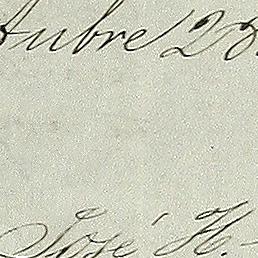 tubre 28
José H.